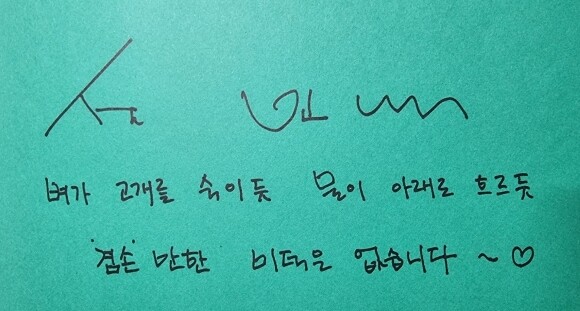 벼가 고개를 숙이듯 물이 아래로 흐르듯
'겸손' 만한 미덕은 없습니다 ~ ♡